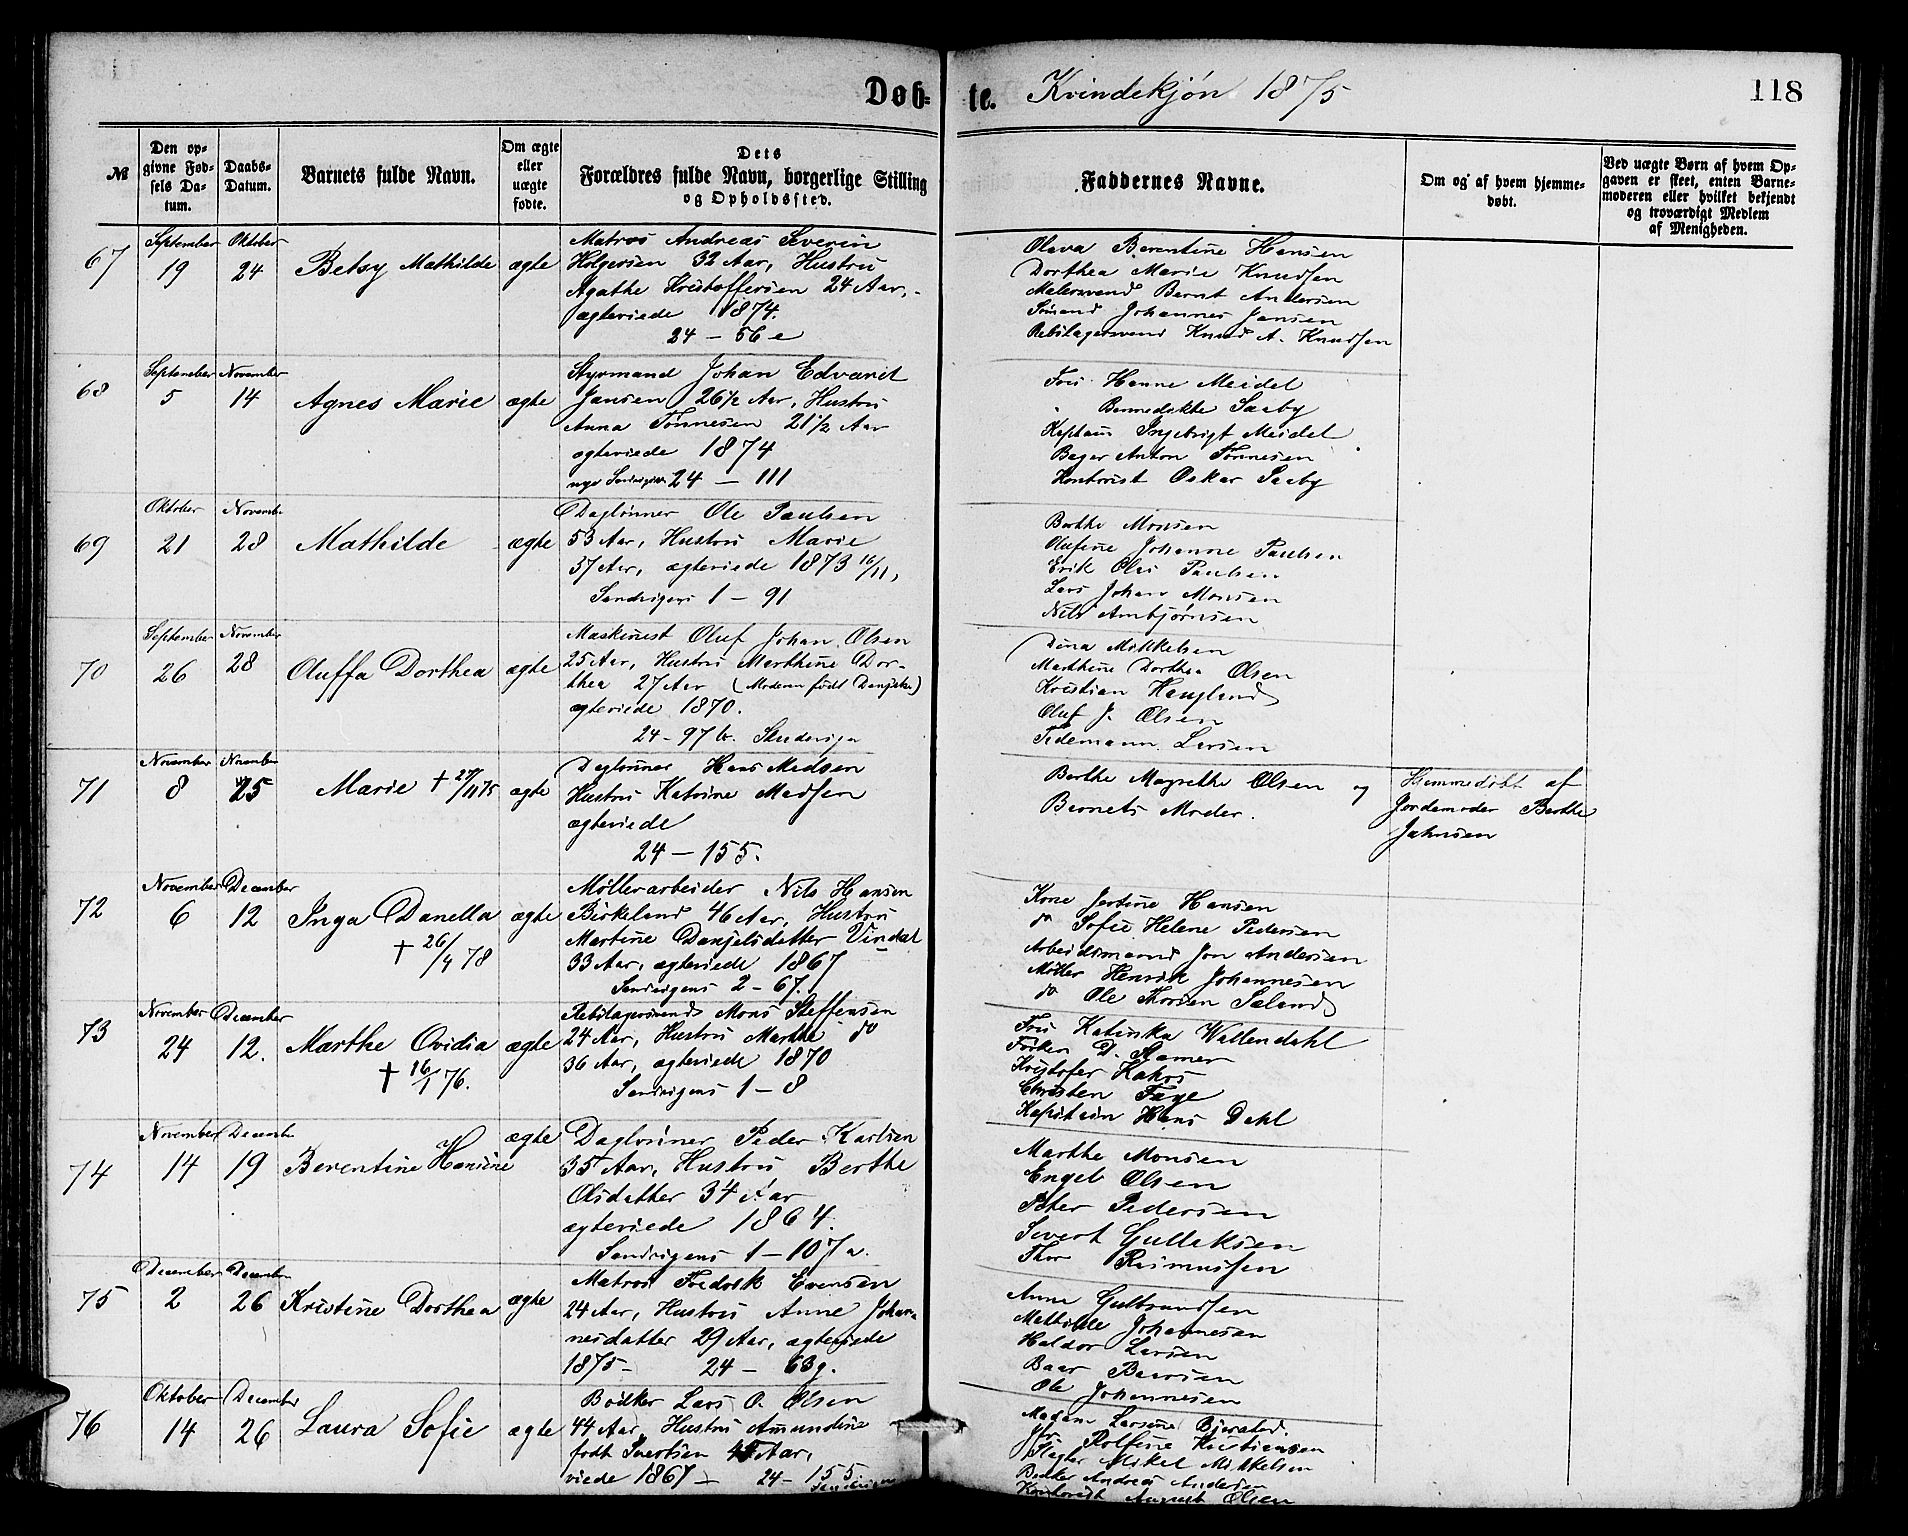 Døb-te. Kvindekjøn 1875
118
№
Den op-
givne Fød-
sels Da-
tum.
Daabs-
Datum.
Barnets fulde Navn.
Om ægte
eller
uægte
fødte.
Dets
Forældres fulde Navn, borgerlige Stilling
og Opholdssted.
Faddernes Navne.
Om og af hvem hjemme-
døbt.
Ved uægte Børn af hvem Op-
gaven er skeet, enten Barne-
moderen eller hvilket bekjendt
og troværdigt Medlem
af Menigheden.
67
September
19
Oktober
24
Betsy Mathilde
ægte
Matros Andreas Severin
Holgersen 32 Aar, Hustru
Agathe Kristoffersen 24 Aar,
ægteviede 1874.
24 – 56 e
Olava Berentine Hansen
Dorthea Marie Knudsen
Malersvend Bernt Andersen
Sømand Johannes Jansen
Rebslagersvend Knud A. Knudsen
68
September
5
November
14
Agnes Marie
ægte
Styrmand Johan Edvard
Jansen 26½ Aar, Hustru
Anna Tønnesen 21½ Aar
ægteviede 1874
nye Sandvigsv. 24 – 111
Fru Hanne Meidel
Bennedikte Saeby
Kaptain Ingebrigt Meidel
Bager Anton Tønnesen
Kontorist Oskar Saeby
69
Oktober
21
November
28
Mathilde
ægte
Daglønner Ole Paulsen
53 Aar, Hustru Marie
37 Aar, ægteviede 1873 16/11,
Sandvigens 1 – 91
Berthe Monsen
Olufine Johanne Paulsen
Erik Olai Paulsen
Lars Johan Monsen
Nils Ambjørnsen
70
September
26
November
28
Oluffa Dorthea
ægte
Maskinist Oluf Johan Olsen
25 Aar, Hustru Marthine Dor-
thea 27 Aar (Moderen født Danjelsen)
ægteviede 1870.
24 – 97 b. Skudevigen
Dina Mikkelsen
Marthine Dorthea Olsen
Kristian Haugland
Oluf J. Olsen
Tidemann Larsen
71
November
8
November
25
Marie † 27/11 75
ægte
Daglønner Hans Madsen
Hustru Katrine Madsen
ægteviede
24 – 155.
Berthe Magrethe Olsen og
Barnets Moder.
Hjemmedøbt af
Jordemoder Berthe
Jahnsen
72
November
6
December
12
Inga Danella
† 26/4 78
ægte
Møllerarbeider Nils Hansen
Birkeland 46 Aar, Hustru
Martine Danjelsdatter Vindal
33 Aar, ægteviede 1867
Sandvigens 2 – 67.
Kone Jertine Hansen
do Sofie Helene Pedersen
Arbeidsmand Jon Andersen
Møller Henrik Johannesen
do Ole Thorsen Sæland
73
November
24
December
12.
Marthe Ovidia
† 16/1 76.
ægte
Rebslagersvend Mons Steffensen
24 Aar, Hustru Marthe do
36 Aar, ægteviede 1870
Sandvigens 1 – 8
Fru Katinka Wallendahl
Frøken D. Stamer
Kristofer Hakos
Christen Faye
Kapitain Hans Dahl
74
November
14
December
19
Berentine Hansine
ægte
Daglønner Peder Karlsen
35 Aar, Hustru Berthe
Olsdatter 34 Aar
ægteviede 1864.
Sandvigens 1 – 107 a.
Marthe Monsen
Engel Olsen
Peter Pedersen
Sivert Gullaksen
Thor Rasmussen
75
December
2
December
26
Kristine Dorthea
ægte
Matros Fredrik Evensen
24 Aar, Hustru Anne Johan-
nesdatter 29 Aar, ægteviede
1875 – 24 – 63 g.
Anne Gulbrandsen
Mathilde Johannesen
Haldor Larsen
Baar Baarsen
Ole Johannesen
76
Oktober
14
December
26
Laura Sofie
ægte
Bødker Lars O. Olsen
44 Aar, Hustru Amundine
født Ivertsen 45 Aar,
viede 1867 – 24 – 155
Sandvigen
Madam Larsine Bjørstad
Jfr. Rolfine Kristiansen
Slagter Mikel Mikkelsen
Bødker Andreas Andersen
Kontorist August Olsen